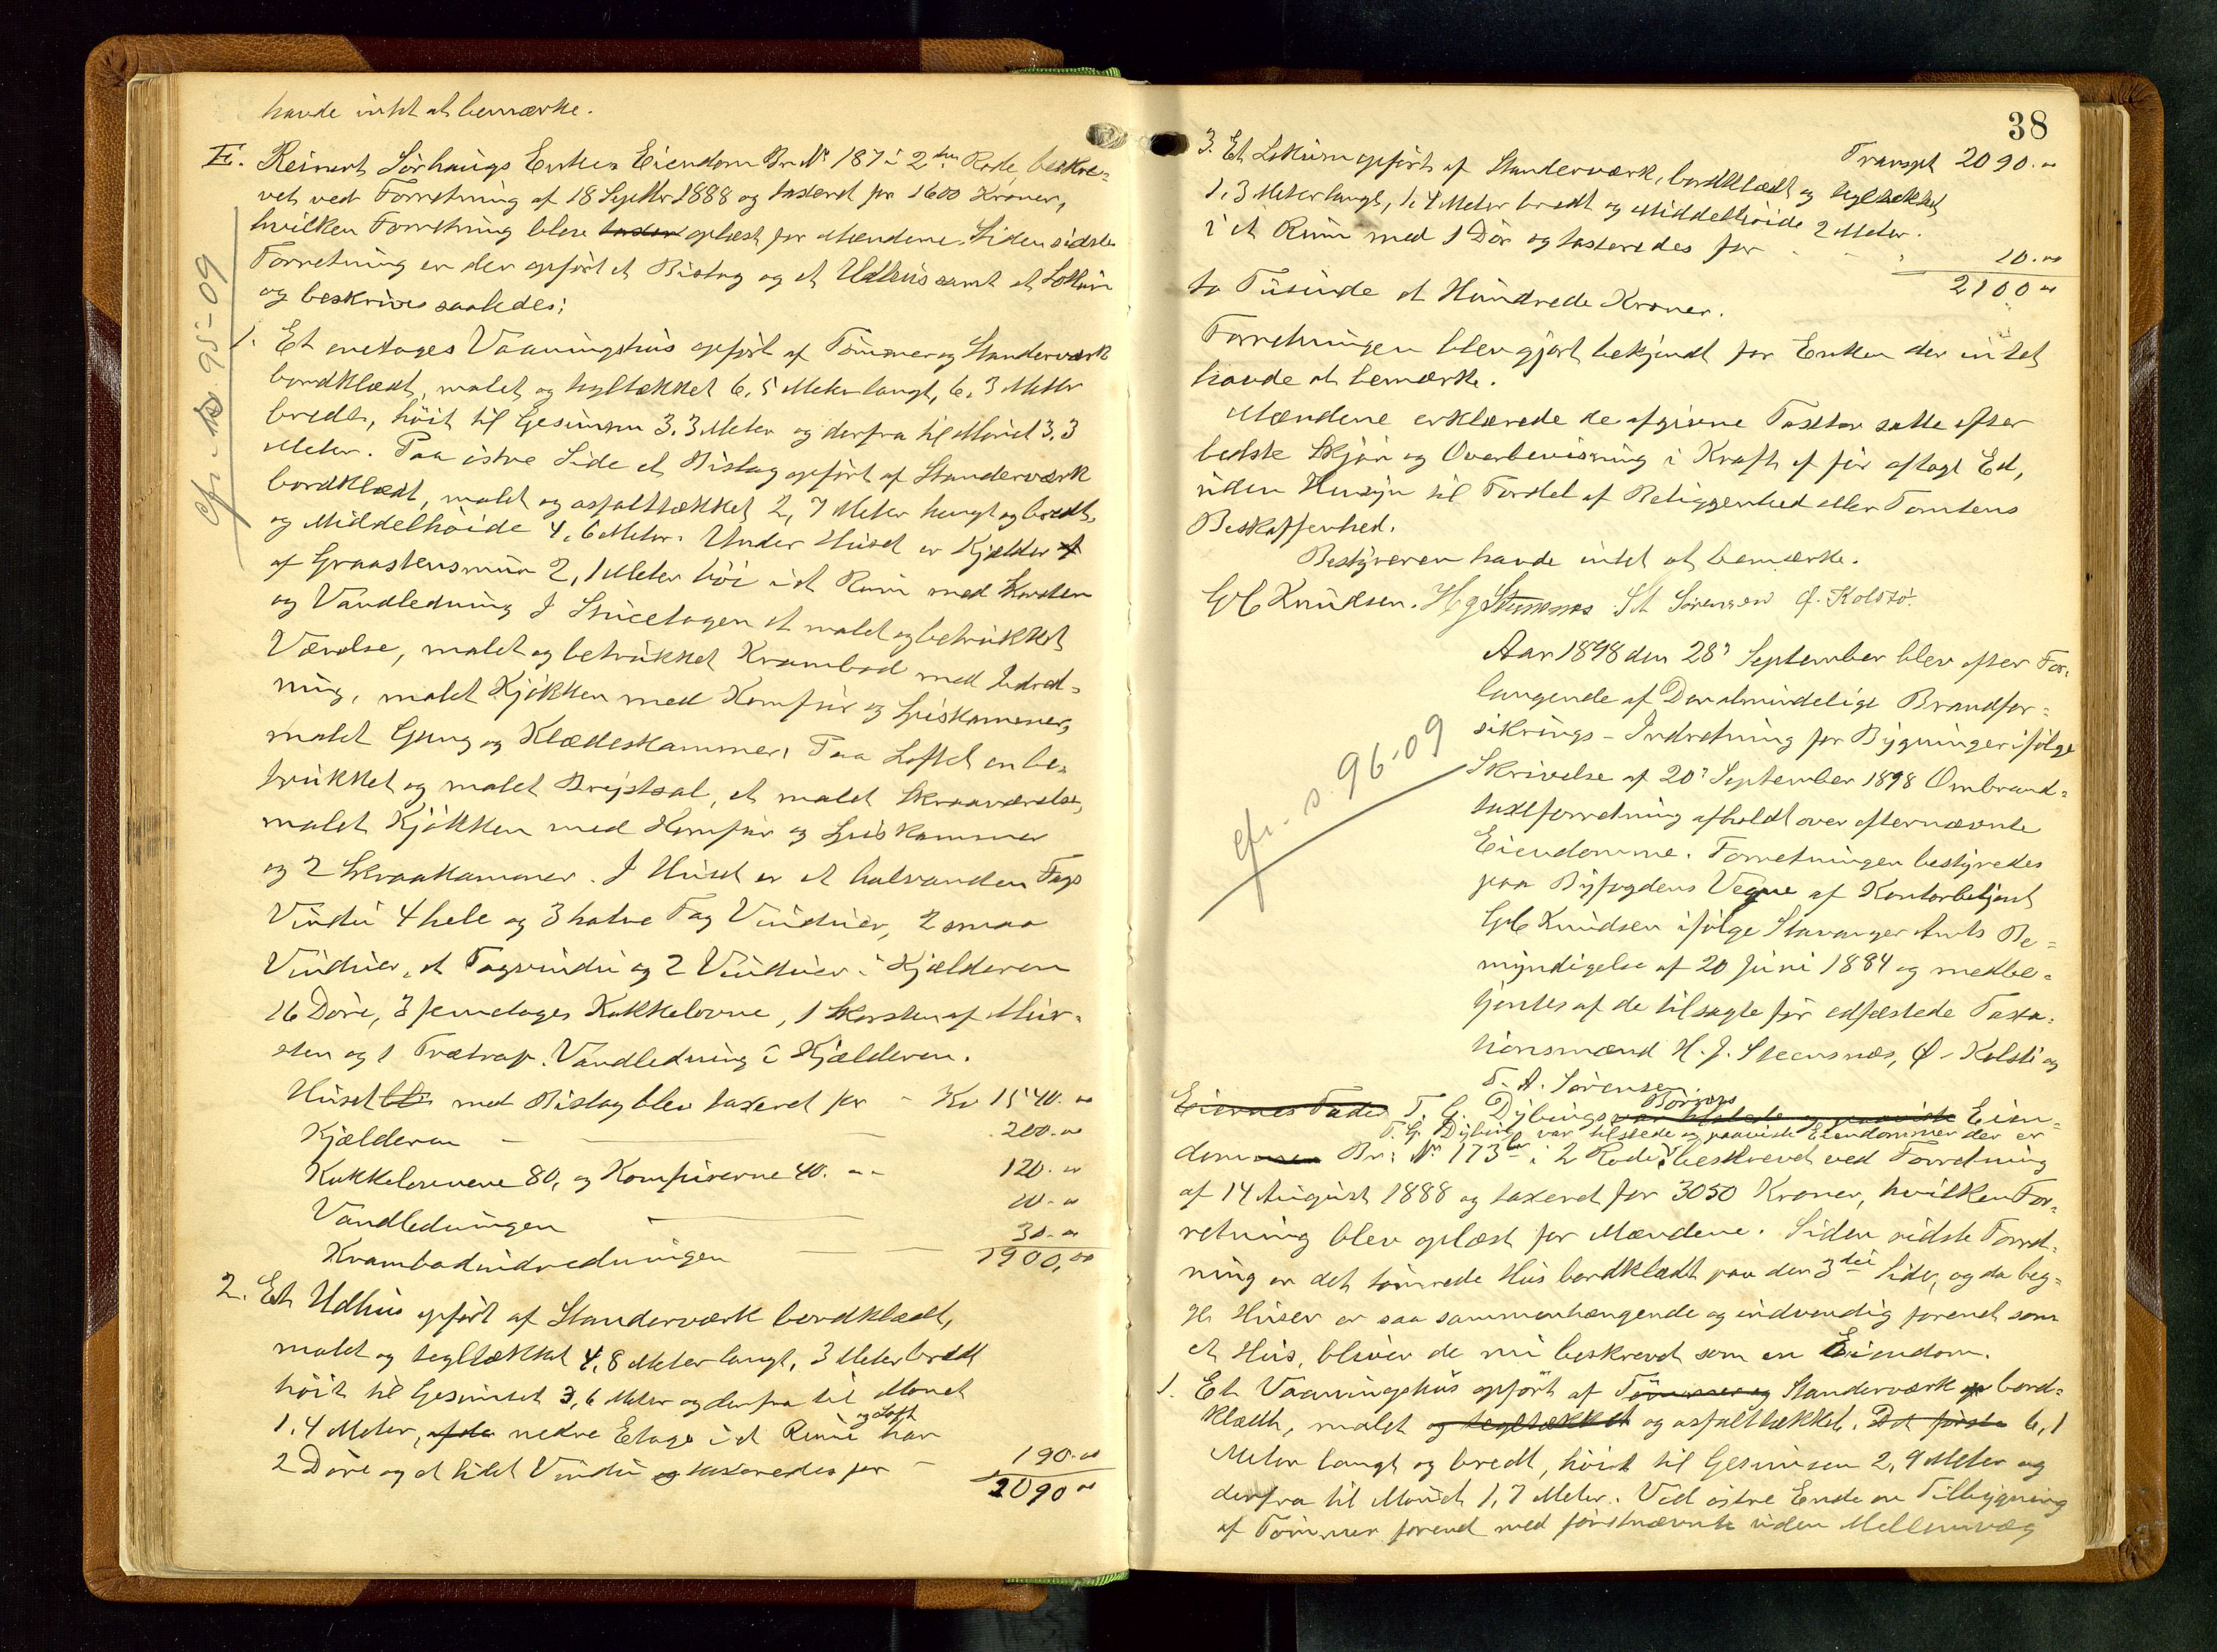 havde intet at bemærke.
E. Reinert Sørhaugs Enkes Eiendom Br. № 187 i 2den Rode, beskre-
vet ved Forretning af 18 Septbr 1888 og taxeret for 1600 Kroner,
hvilken Forretning blev oplæst for Mændene. Siden sidste
Forretning er der opført et Bislag og et Udhus samt et Lokum
og beskrives saaledes:
cfr. s. 95-09
1. Et enetages Vaaningshus opført af Tømmer og Standerværk
bordklædt, malet og tegltækket 6,5 Meter langt, 6,3 Meter
bredt, høit til Gesimsen 3.3 Meter og derfra til Mønet 3,3
Meter. Paa østre Side et Bislag opført af Standerværk
bordklædt, malet og asfalttækket 2,7 Meter langt og bredt,
og Middelhøide 4,6 Meter. Under Huset er Kjelder
af Graastensmur 2,1 Meter høi i et Rum med Skorsten
og Vandledning I Stueetagen et malet og betrukket
Værelse, malet og betrukket Krambod med Indred-
ning, malet Kjøkken med Komfur og Spiskammer,
malet Gang og Klædeskammer. Paa Loftet en be-
trukket og malet Brystsal, et malet Skraaværelse,
malet Kjøkken med Komfur og Spiskammer
og 2 Skraakammer. I Huset er et halvanden Fags
Vindu 4 hele og 3 halve Fag Vinduer, 2 smaa
Vinduer, et Tagvindu og 2 Vinduer i Kjælderen
16 Døre, 3 femetages Kakkelovne, 1 Skorsten af Mur-
sten og 1 Trætrap. Vandledning i Kjælderen.
Huset med Bislag blev taxeret for - Kr 1540.00
Kjælderen - 200.00
Kakkelovnene 80, og Komfurerne 40. 120.00
Vandledningen 10.00
Krambodindredningen 30.00
1900,00
2. Et Udhus opført af Standerværk bordklædt,
malet og tegltækket 4,8 Meter langt, 3 Meter bredt
høit til Gesimset 3,6 Meter og derfra til Mønet
1,4 Meter, nedre Etage i et Rum og Loft har
2 Døre og et lidet Vindu og taxeredes for - 190.00
2090.00
38
Transpt 2090.00
3. Et Lokum opført af Standerværk, bordklædt og tegltækket
1,3 Meter langt, 1,4 Meter bredt og Middelhøide 2 Meter.
i et Rum med 1 Dør og taxeredes for 10.00
2100.00
to Tusinde et Hundrede Kroner.
Forretningen blev gjort bekjendt for Enken der intet
havde at bemærke.
Mændene erklærede de afgivne Taxter satte efter
bedste Skjøn og Overbevisning i Kraft af før aflagt Ed,
uden Hensyn til Fordel af Beliggenhed eller Tomtens
Beskaffenhed.
Bestyreren havde intet at bemærke.
Knudsen. H J Stensnæs Sørensen Ø. Kolstø.
Aar 1898 den 28' September blev efter For-
langende af Den almindelige Brandfor-
sikrings-Indretning for Bygninger ifølge
Skrivelse af 20' September 1898 Ombrand-
taxtforretning afholdt over efternævnte
Eiendomme. Forretningen bestyredes
paa Byfogdens Vegne af Kontorbetjent
Knudsen ifølge Stavanger Amts Be-
myndigelse af 20 Juni 1884 og medbe-
tjentes af de tilsagte før edfæstede Taxa-
tionsmænd H. J. Steensnæs, Ø. Kolstø og
T. A. Sørensen.
cfr. s. 96-09
T. G. Dybings Eien-
T. G. Dybing var tilstede og paaviste Eiendommen der er
dom Br. № 173 i 2 Rode beskrevet ved Forretning
af 14 August 1888 og taxeret for 3050 Kroner, hvilken For-
retning blev oplæst for Mændene. Siden sidste Forret-
ning er det tømrede Hus bordklædt paa den 3die Side, og da beg-
ge Huser er saa sammenhængende og indvendig forenet som
et Hus, bliver de nu beskrevet som en Eiendom.
1. Et Vaaningshus opført af Tømmer og Standerværk bord-
klædt, malet og tegltækket og asfalttækket. Det første 6,1
Meter langt og bredt, høit til Gesimsen 2,9 Meter og
derfra til Mønet 1,7 Meter. Ved østre Ende en Tilbygning
af Tømmer forenet med førstnævnte uden Mellemvæg